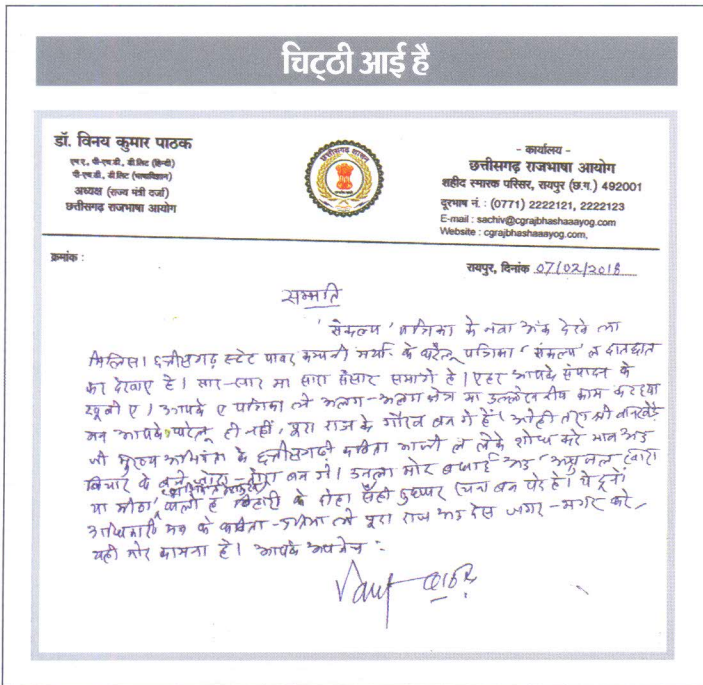 चिट्ठी आई है
डॉ. विनय कुमार पाठक
एम.ए., पी-एच.डी., डी.लिट (हिन्दी)
पी-एच.डी., डी.लिट (भाषाविज्ञान)
अध्यक्ष (राज्य मंत्री दर्जा)
छत्तीसगढ़ राजभाषा आयोग
छत्तीसगढ़ शासन
- कार्यालय -
छत्तीसगढ़ राजभाषा आयोग
शहीद स्मारक परिसर, रायपुर (छ.ग.) 492001
दूरभाष नं. : (0771) 2222121, 2222123
E-mail : sachiv@cgrajbhashaaayog.com
Website : cgrajbhashaaayog.com,
क्रमांक :
रायपुर, दिनांक 07/02/2018
सम्मति
'संकल्प' पत्रिका के नवा अंक देखे ला
मिलिस। छत्तीसगढ़ स्टेट पावर कम्पनी मर्या. के घरेलू पत्रिका 'संकल्प' ल
कर देखाए हे। सार-सार मा सारा संसार समागे हे। एहर आपके संपादन के
खूबी ए। आपके ए पत्रिका ले अलग-अलग क्षेत्र मा उल्लेखनीय काम करइया
मन आपके घरेलू ही नहीं, पूरा राज के गौरव बन गे हें। ओही तरा श्री
जी मुख्य अभियंता के छत्तीसगढ़ी कविता ल लेके शोध करे मान अउ
विचार के बन गे। उनला मोर बधाई अउ
या के दोहा बन परे हे। ये दूनों
अधिकारी मन के कविता- ले पूरा राज अउ देस जगर-मगर करे,
यही मोर कामना हे। आपके अपनेच :